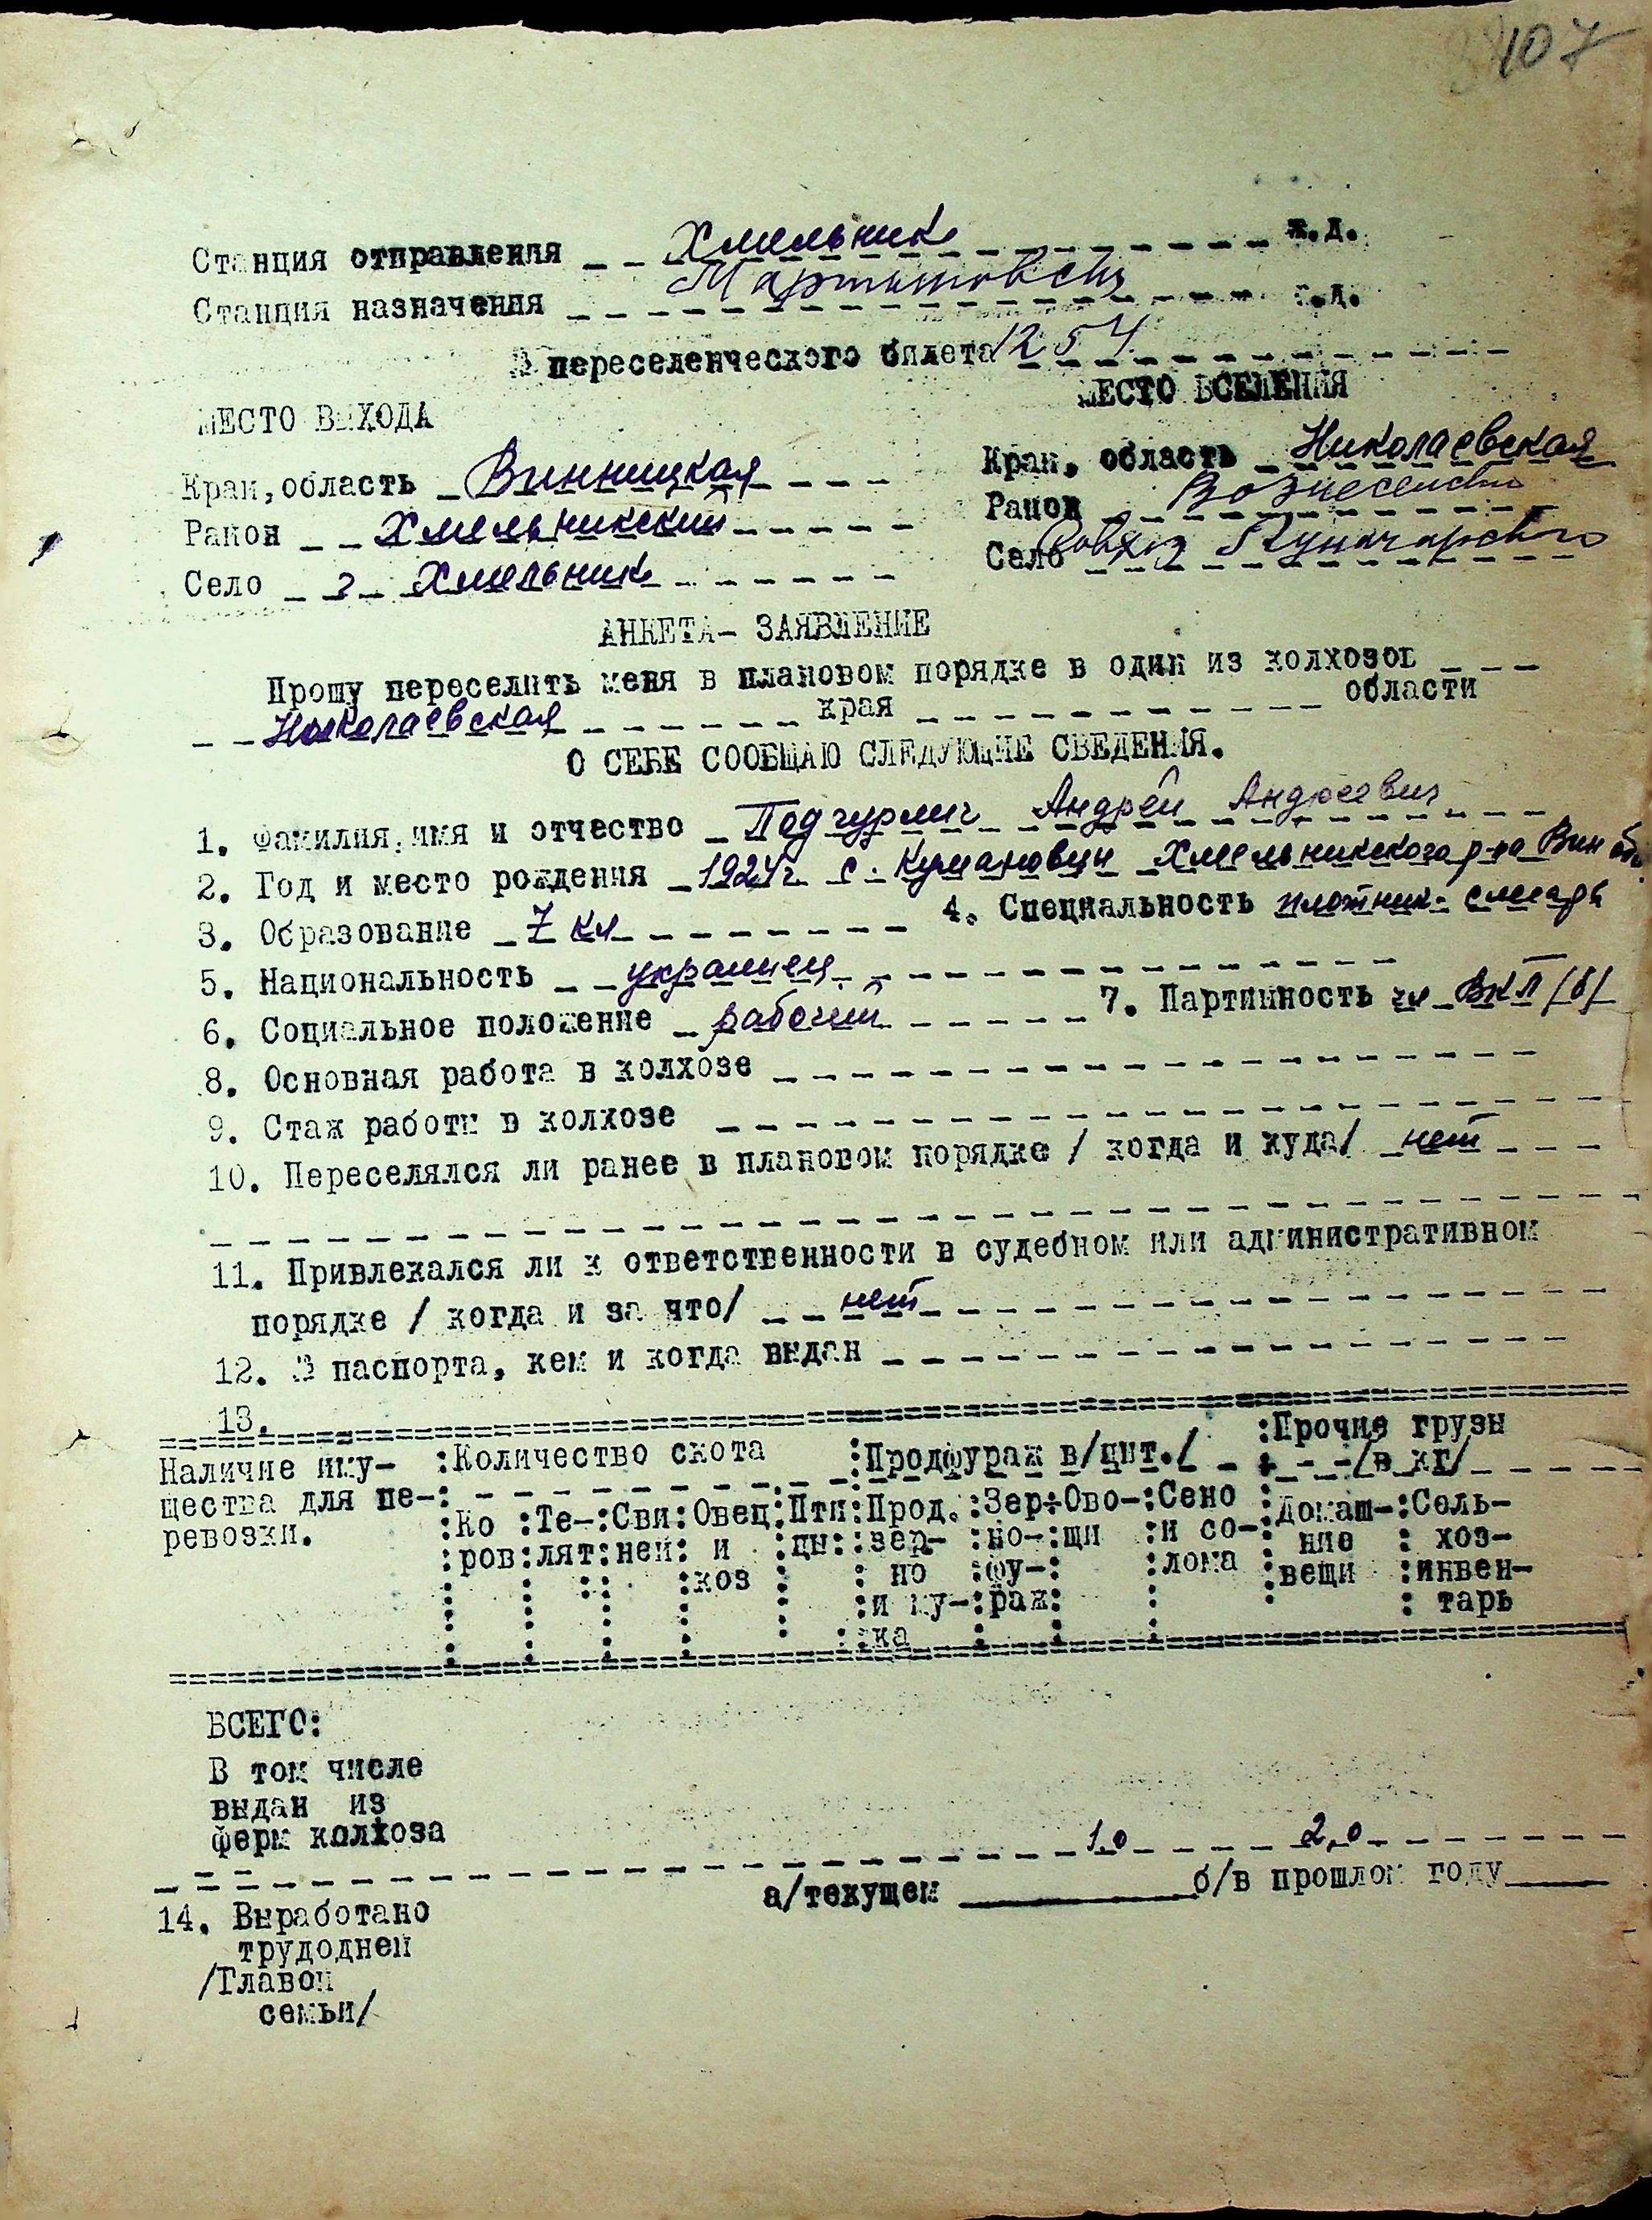 107
Станция отправления Хмельник ж.д.
Станция назначения Мартыновск ж.д.
№ переселенческого билета 1254
МЕСТО ВСЕЛЕНИЯ
МЕСТО ВЫХОДА
Край, область Николаевская
Край, область Винницкая
Район Вознесенский
Район Хмельникский
Село Совхоз Луначарского
Село г Хмельник
АНКЕТА- ЗАЯВЛЕНИЕ
Прошу переселить меня в плановом порядке в один из колхозов
Николаевская края области
О СЕБЕ СООБЩАЮ СЛЕДУЮЩИЕ СВЕДЕНИЯ.
1. Фамилия, имя и отчество Андрей Андреевич
2. Год и место рождения 1924г с. Кумановци Хмельникского р-на Вин обл.
3. Образование 7 кл 4. Специальность плотник- слесарь
5. Национальность украинец
6. Социальное положение рабочий 7. Партийность чл ВКП/б/
8. Основная работа в колхозе
9. Стаж работы в колхозе
10. Переселялся ли ранее в плановом порядке / когда и куда/ нет
11. Привлекался ли к ответственности в судебном или административном
порядке / когда и за что/ нет
12. № паспорта, кем и когда выдан
13.
Наличие иму- :Количество скота :Продфураж в/цнт./ :Прочие грузы
/в кг/
щества для пе-: Ко :Те-:Сви:Овец:Пти:Прод.:Зер÷Ово-:Сено :Домаш-:Сель-
ревозки. :ров:лят:ней: и :цы: зер- :но-:щи :и со-: ние : хоз-
:коз : но :фу-: :лома :вещи :инвен-
:и му-:раж: : тарь
:ка
ВСЕГО:
В том числе
выдан из
ферм колхоза
1.0 2,0
14. Выработано а/текущем б/в прошлом году
трудодней
/Главой
семьи/